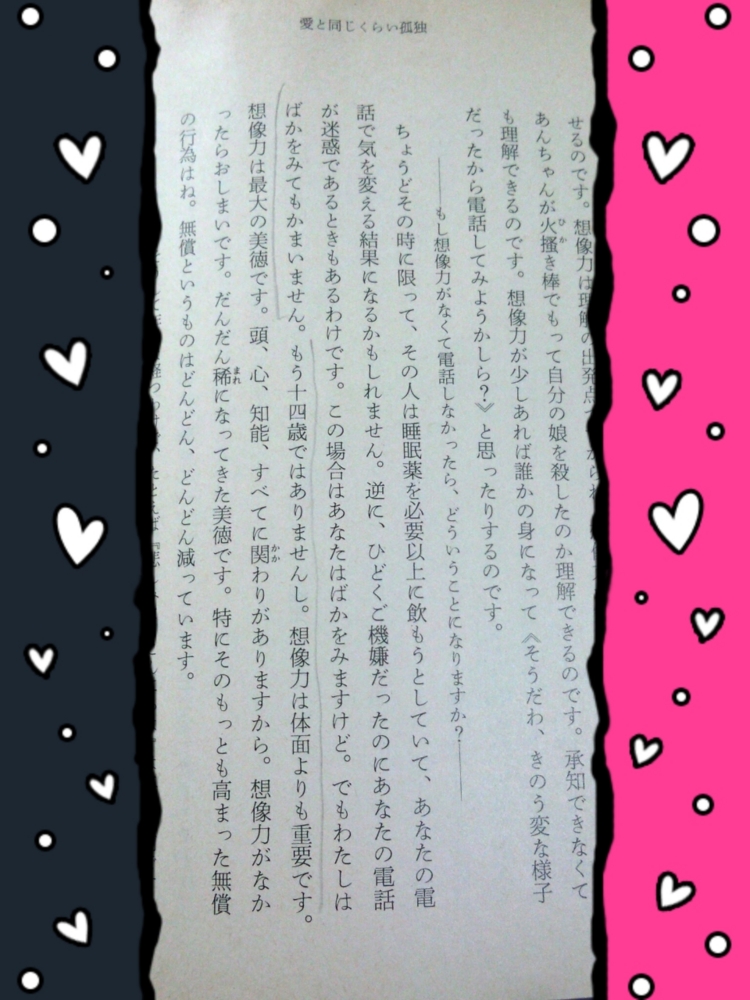 愛と同じくらい孤独
せるのです。想像力は理解の出発点
あんちゃんが火掻き棒でもって自分の娘を殺したのか理解できるのです。承知できなくて
も理解できるのです。想像力が少しあれば誰かの身になって《そうだわ、きのう変な様子
だったから電話してみようかしら？》と思ったりするのです。
――もし想像力がなくて電話しなかったら、どういうことになりますか？――
ちょうどその時に限って、その人は睡眠薬を必要以上に飲もうとしていて、あなたの電
話で気を変える結果になるかもしれません。逆に、ひどくご機嫌だったのにあなたの電話
が迷惑であるときもあるわけです。この場合はあなたはばかをみますけど。でもわたしは
ばかをみてもかまいません。もう十四歳ではありませんし。想像力は体面よりも重要です。
想像力は最大の美徳です。頭、心、知能、すべてに関わりがありますから。想像力がなか
ったらおしまいです。だんだん稀になってきた美徳です。特にそのもっとも高まった無償
の行為はね。無償というものはどんどん、どんどん減っています。